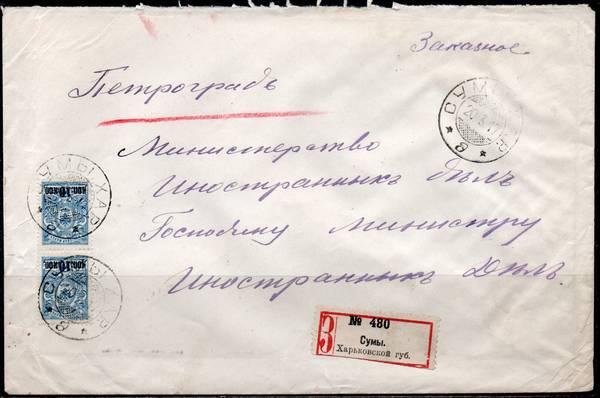 Заказное
Петроградъ
Министерство
Иностранныхъ Дѣлъ
Господину Министру
Иностранныхъ Дѣлъ.
СУМЫ ХАР.
* 8 *
СУМЫ ХАР.
* 8 *
КОП. 10 КОП
СУМЫ ХАР.
* 8 *
КОП. 10 КОП
З
№ 480
Сумы.
Харьковской губ.